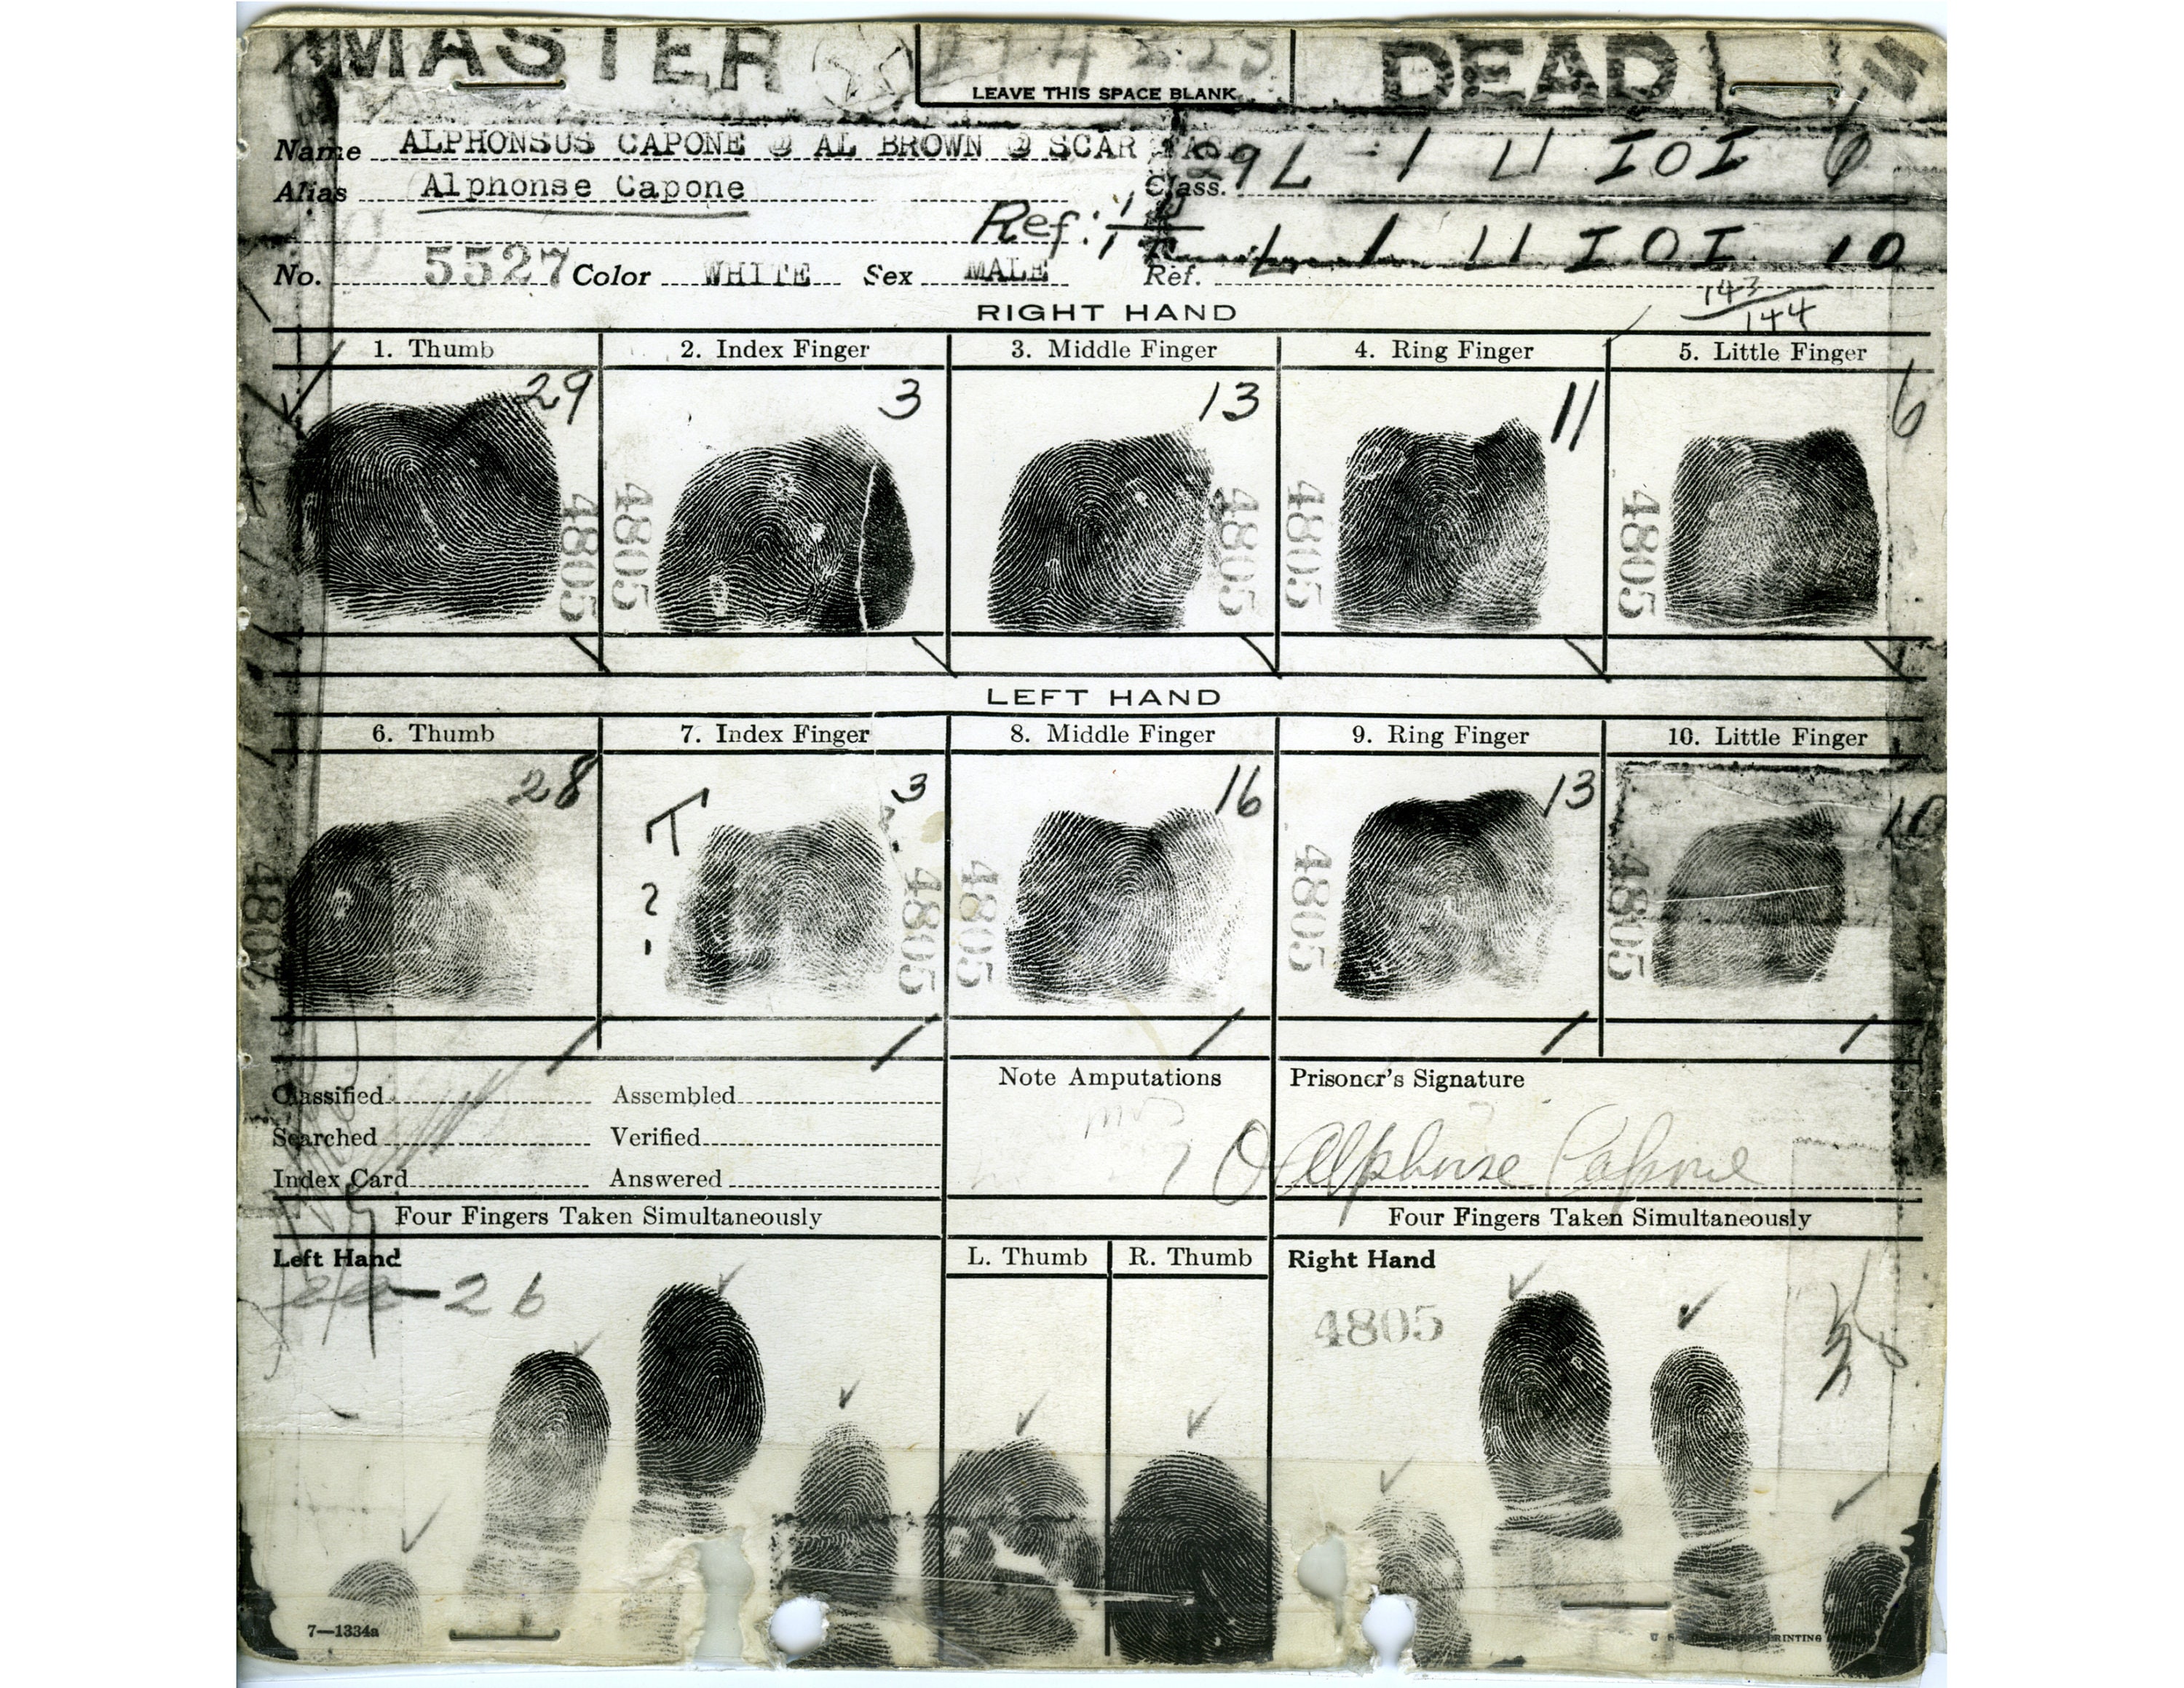 MASTER DEAD
LEAVE THIS SPACE BLANK
Name ALPHONSUS CAPONE @ AL BROWN @ SCAR
Alias Alphonse Capone
Class. 29 L 1 U IOI 6
Ref: 1
L 1 U IOI 10
No. 5527 Color WHITE Sex MALE Ref.
143
144
RIGHT HAND
1. Thumb 2. Index Finger 3. Middle Finger 4. Ring Finger 5. Little Finger
29 3 13 11 6
4805 4805 4805 4805 4805
LEFT HAND
6. Thumb 7. Index Finger 8. Middle Finger 9. Ring Finger 10. Little Finger
28 T 3 16 13 10
?
4805 4805 4805 4805
Note Amputations Prisoner's Signature
Classified Assembled
Searched Verified
Alphonse Capone
Index Card Answered
Four Fingers Taken Simultaneously Four Fingers Taken Simultaneously
Left Hand L. Thumb R. Thumb Right Hand
26
4805
7—1334a PRINTING